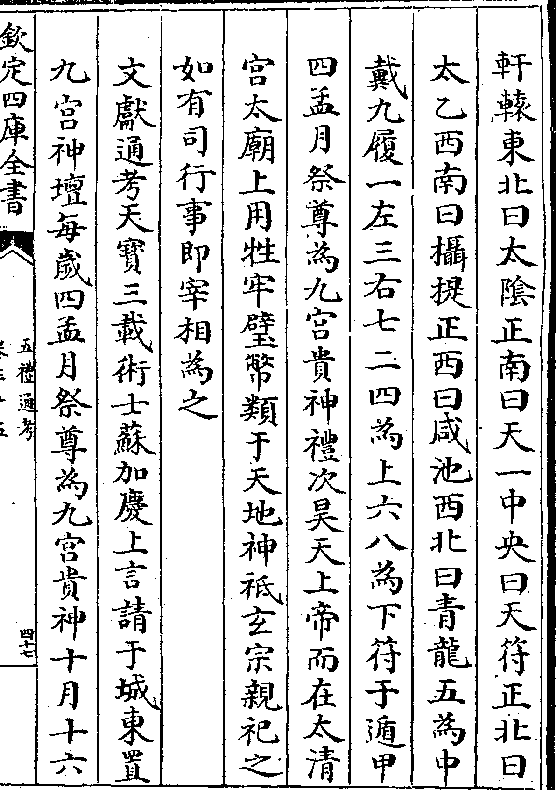 軒轅東北曰太陰正南曰天一中央曰天符正北曰
太乙西南曰攝提正西曰咸池西北曰青龍五為中
戴九履一左三右七二四為上六八為下符于遁甲
四孟月祭尊為九宫貴神禮次昊天上帝而在太清
宫太廟上用牲牢璧幣類于天地神祇玄宗親祀之
如有司行事即宰相為之
文獻通考天寶三載術士蘇加慶上言請于城東置
九宫神壇每歲四孟月祭尊為九宫貴神十月十六
欽定四庫全書
五禮通考
四十七